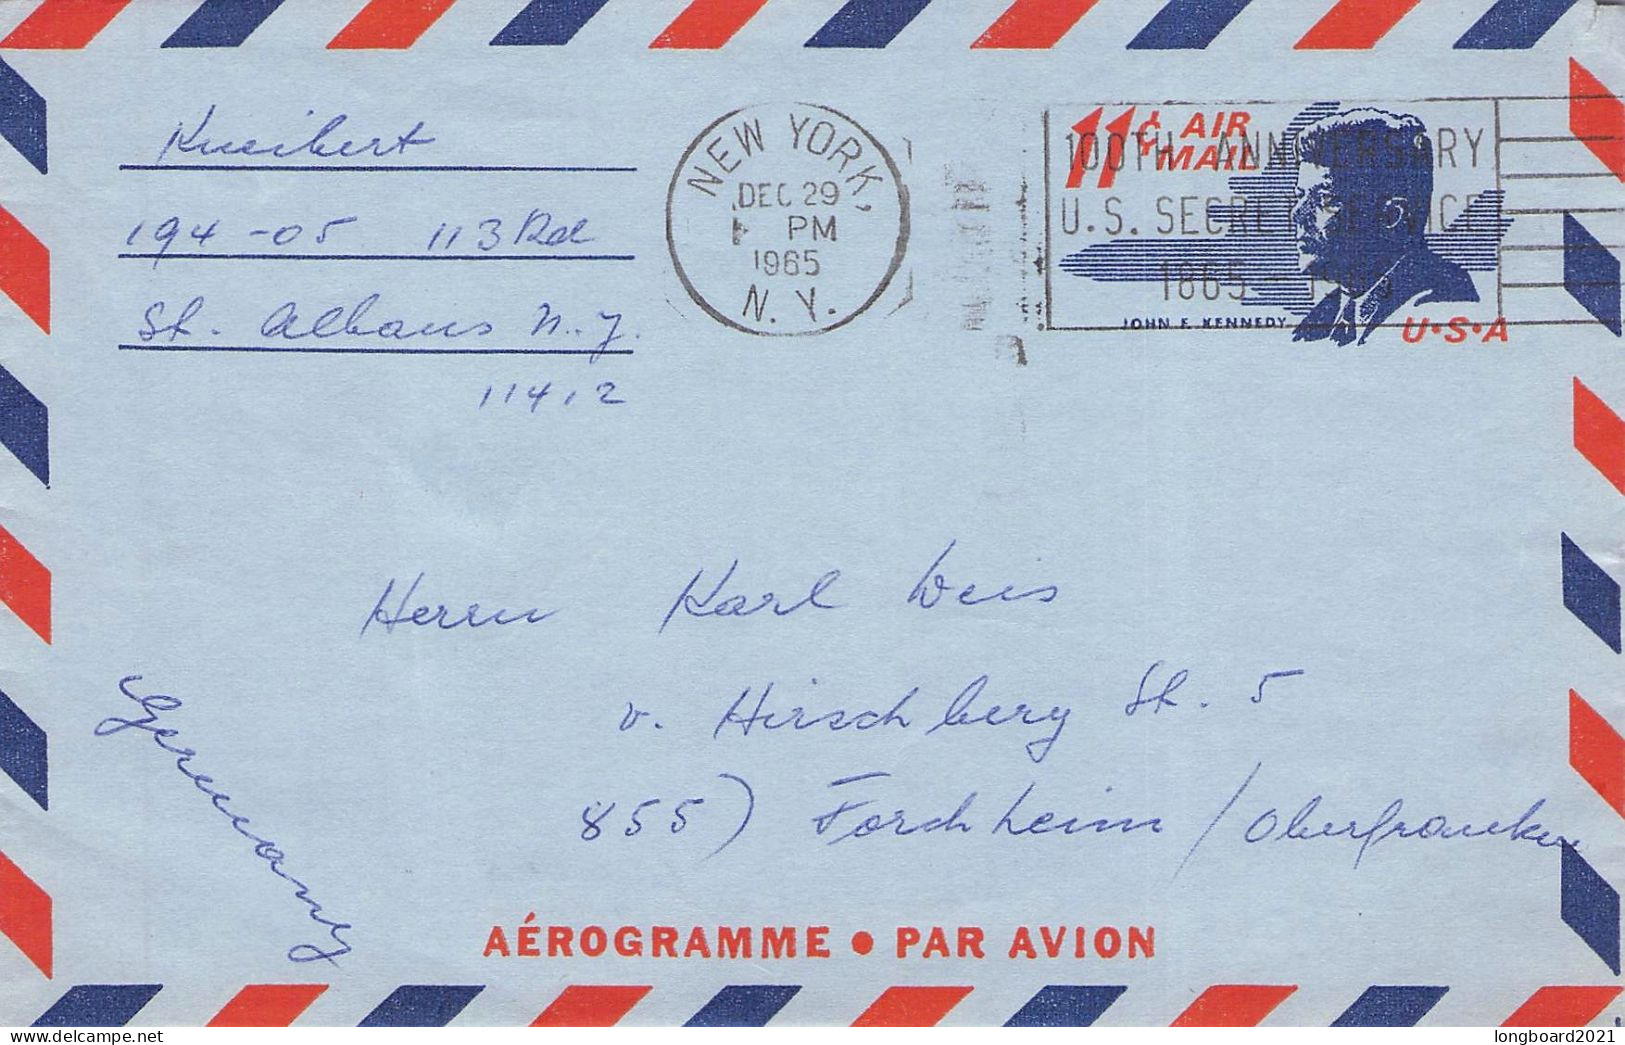 Kueibert
194-05 113 Rd
St. Albans N.Y.
11412
NEW YORK,
DEC 29
PM
1965
N. Y.
11¢ AIR MAIL
100TH ANNIVERSARY
U.S. SECRET SERVICE
1865-1965
JOHN F. KENNEDY
U·S·A
Herrn Karl Weis
v. Hirschberg St. 5
855) Forchheim / Oberfranken
Germany
AÉROGRAMME • PAR AVION
delcampe.net
longboard2021